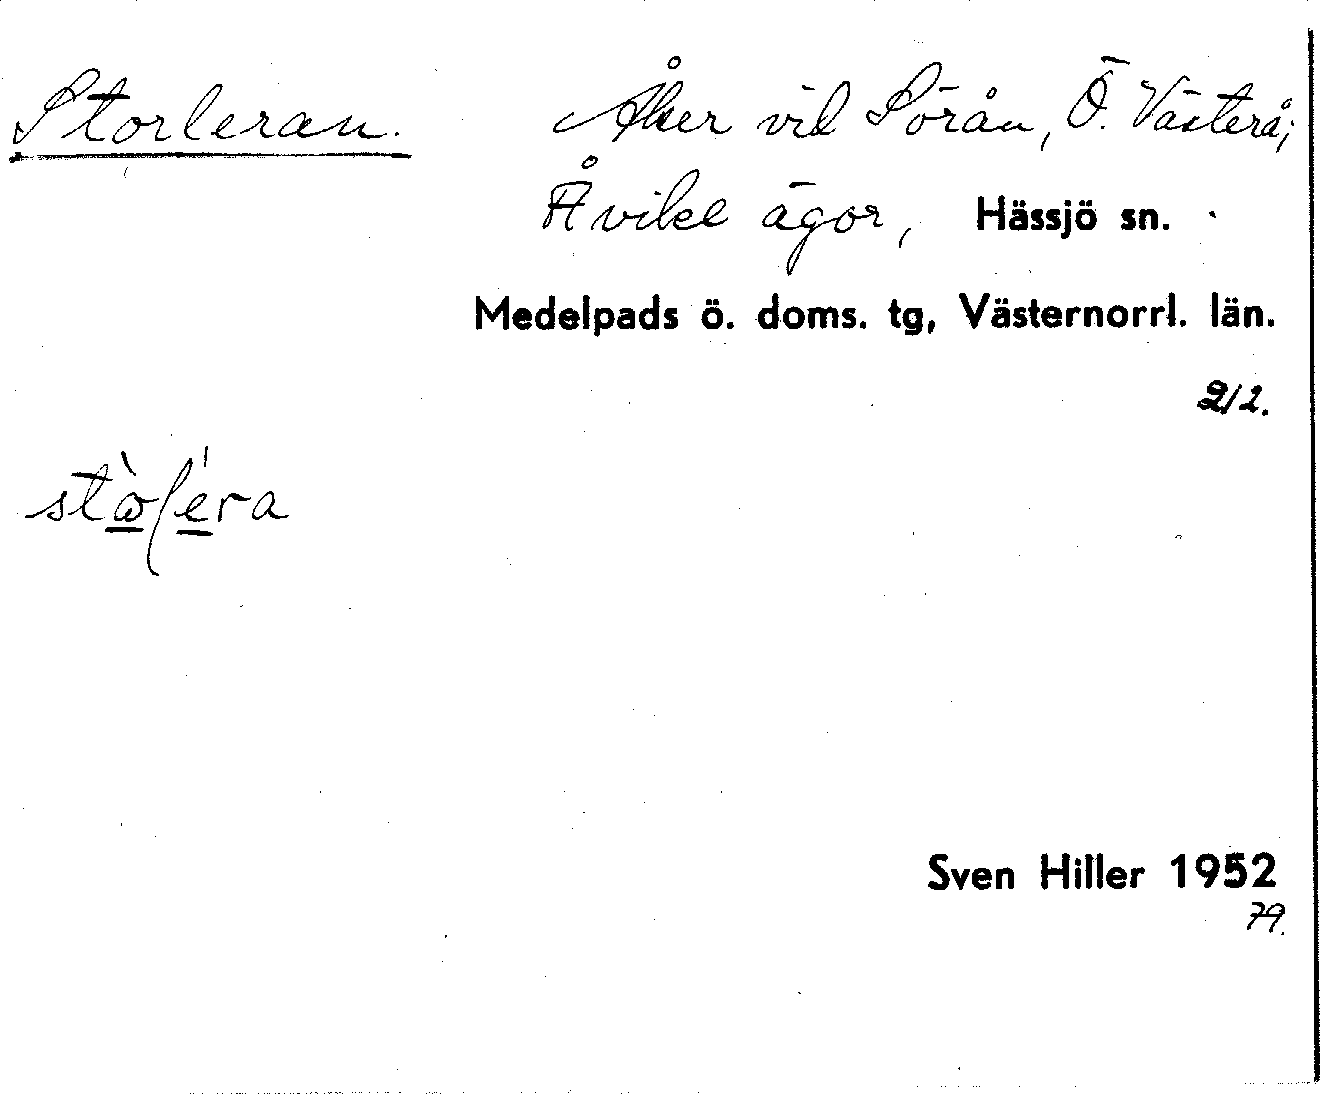 Storleran.
Åker vid Sörån, Ö. Västerå;
Åvike ägor, Hässjö sn.
Medelpads ö. doms. tg, Västernorrl. län.
2/2.
Sven Hiller 1952
79.